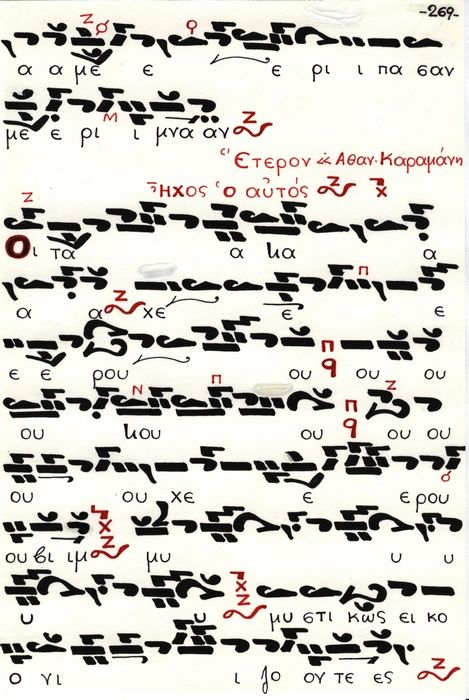 -269-
α α με ε ε ρι ι πα σαν
με ε ρι ι μνα αν
Ἕτερον ἐκ Αθαν. Καραμάνη
Ἦχος ὁ αὐτός
Οι τα α κα α
α α χε ε ε
ε ε ρου ου ου ου
ου κου ου ου ου
ου ου χε ε ε ρου
ου βι ιμ μυ υ υ
υ υ μυ στι κως ει κο
ο νι ι ζο ον τε ες